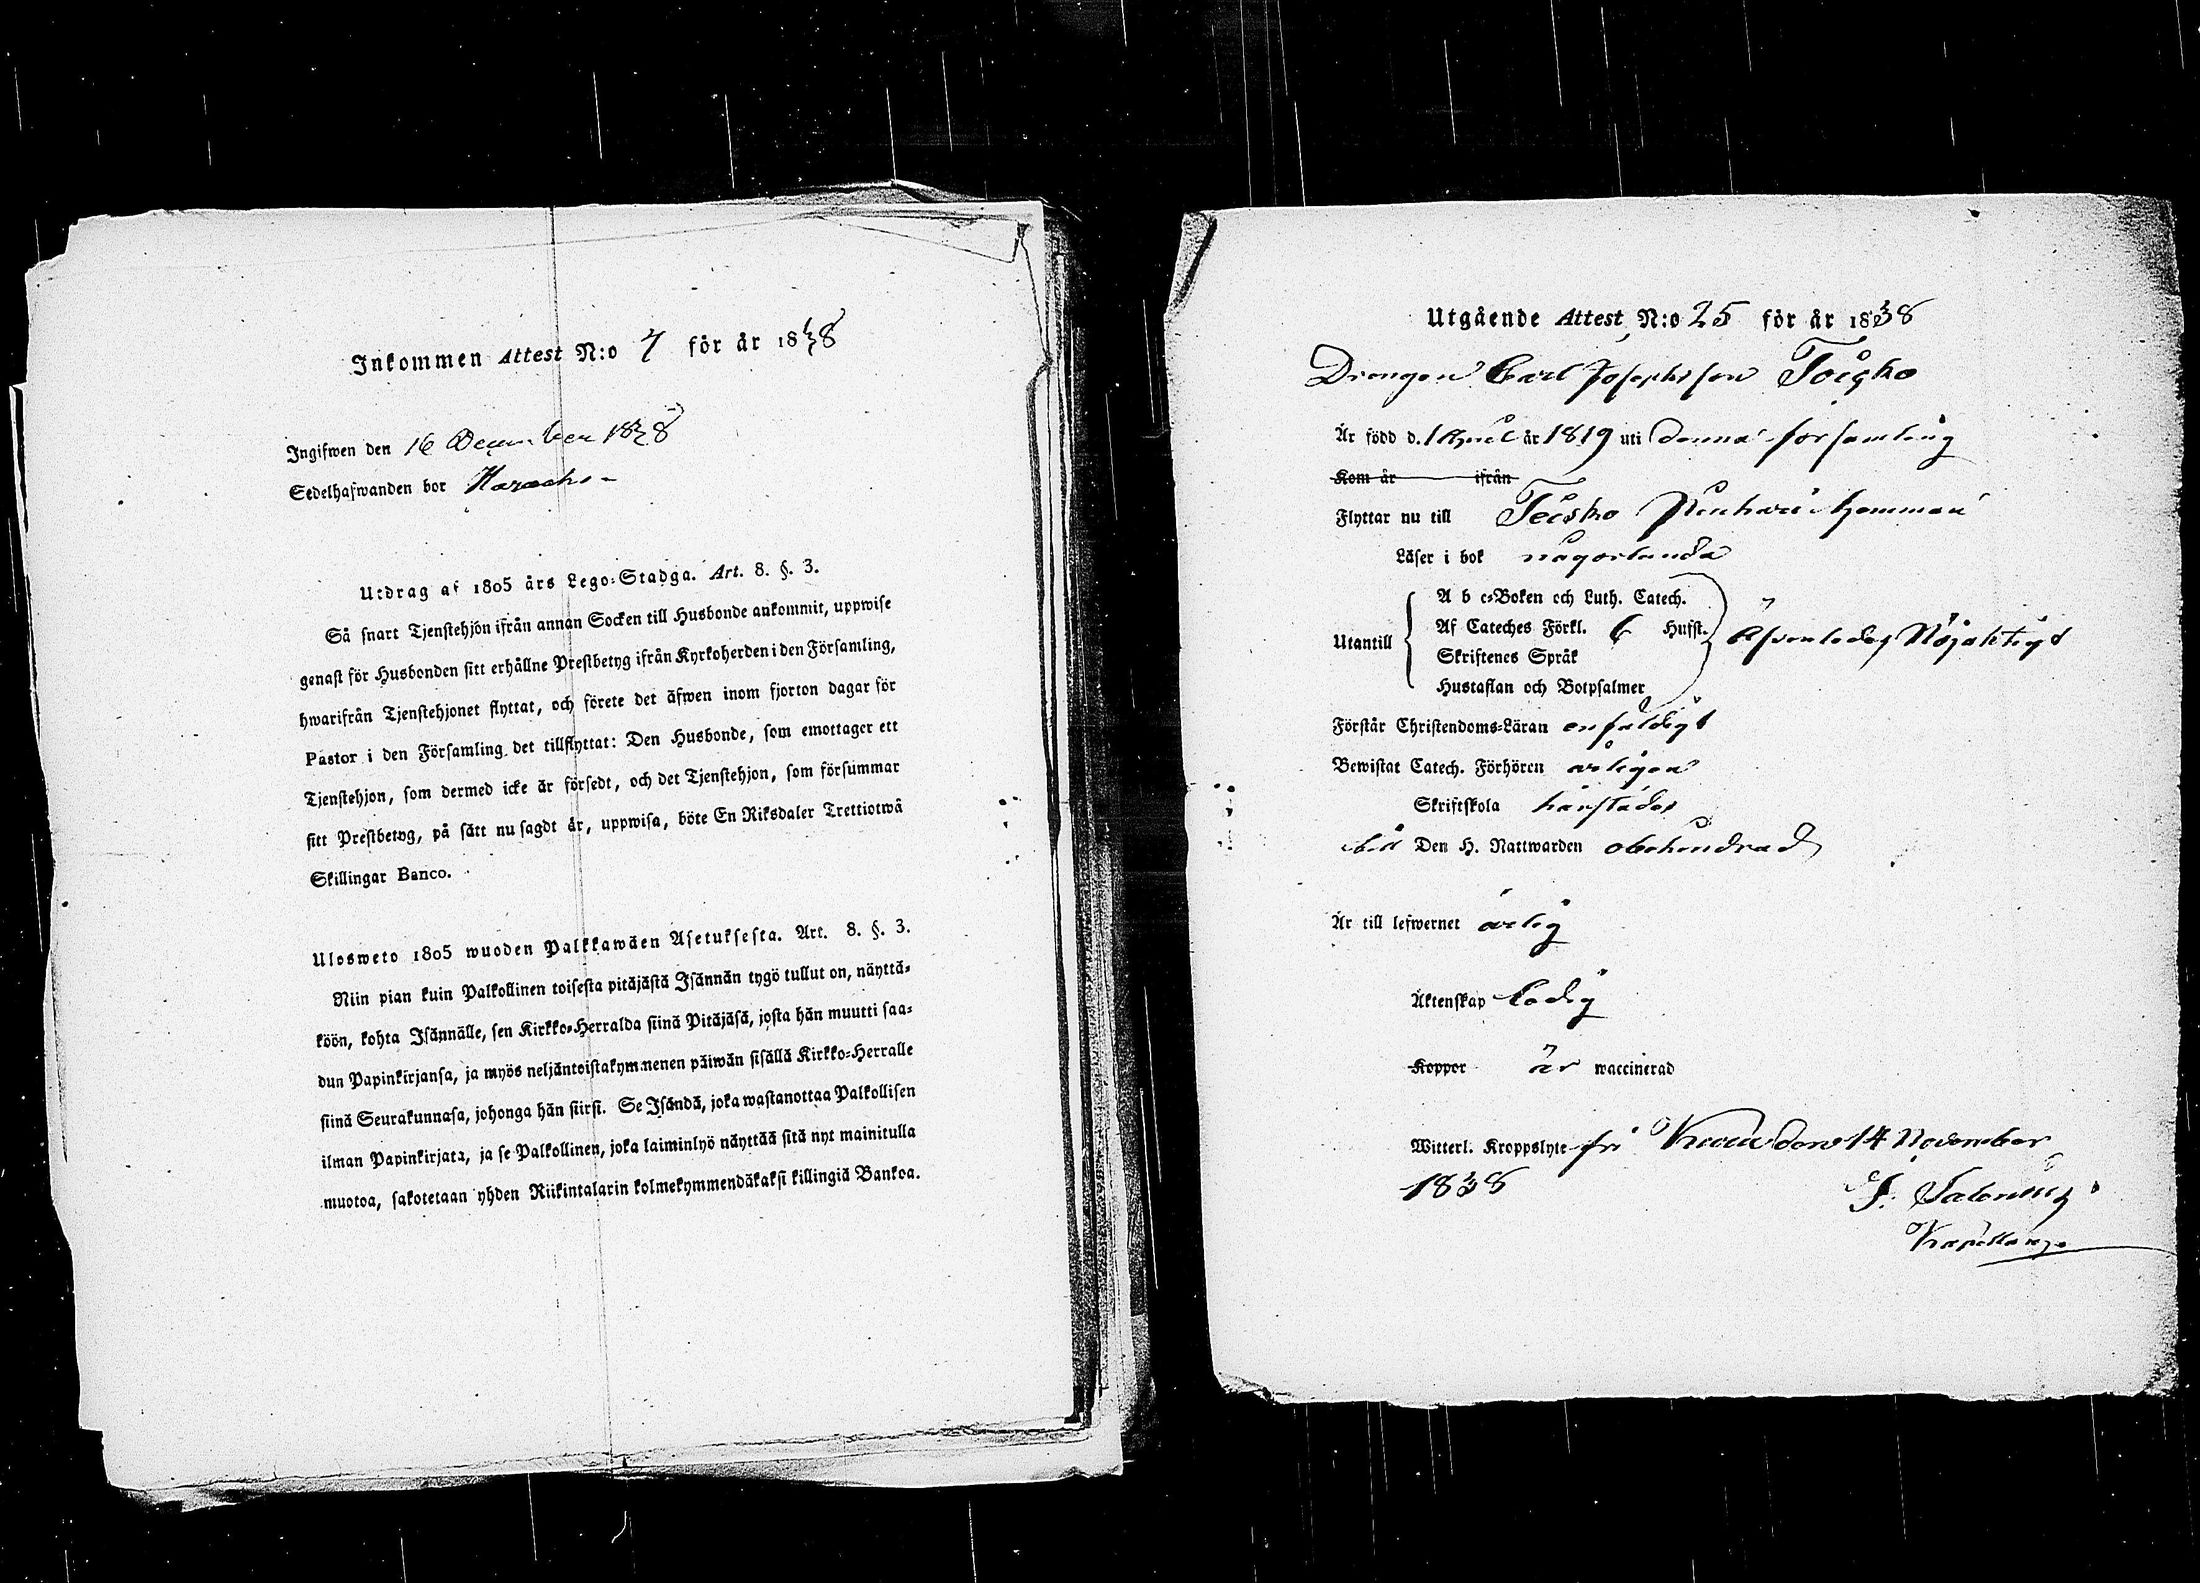 Inkommen Attest N:o 7 för år 1838
Ingifwen den 16 December 1838
Sedelhafwanden bor
Utdrag af 1805 års Lego-Stadga. Art. 8. §. 3.
Så snart Tjenstehjon ifrån annan Socken till Husbonde ankommit, uppwise
genast för Husbonden sitt erhållne Prestbetyg ifrån Kyrkoherden i den Församling,
hwarifrån Tjenstehjonet flyttat, och förete det äfwen inom fjorton dagar för
Pastor i den Församling det tillflyttat: Den Husbonde, som emottager ett
Tjenstehjon, som dermed icke är försedt, och det Tjenstehjon, som försummar
sitt Prestbetyg, på sätt nu sagdt är, uppwisa, böte En Riksdaler Trettiotwå
Skillingar Banco.
Ulosweto 1805 wuoden Palkkawäen Asetuksesta. Art. 8. §. 3.
Niin pian kuin Palkollinen toisesta pitäjästä Isännän tygö tullut on, näyttä-
köön, kohta Isännälle, sen Kirkko-Herralda siinä Pitäjäsä, josta hän muutti saa-
dun Papinkirjansa, ja myös neljäntoistakymmenen päiwän sisällä Kirkko-Herralle
siinä Seurakunnasa, johonga hän siirsi. Se Isändä, joka wastanottaa Palkollisen
ilman Papinkirjata, ja se Palkollinen, joka laiminlyö näyttää sitä nyt mainitulla
muotoa, sakotetaan yhden Riikintalarin kolmekymmendäkaksi killingiä Bankoa.
Utgående Attest N:o 25 för år 1838
Drengen Carl Josephsson Toisko
Är född d. 1 April år 1819 uti denna församling
Kom år ifrån
Flyttar nu till Teisko hemman
Läser i bok någorlunda
A b c-Boken och Luth. Catech.
Utantill Af Cateches Förkl. 6 Hufst. Äfwenledes Nöjaktigt
Skriftenes Språk
Hustaflan och Botpsalmer
Förstår Christendoms-Läran enfaldigt
Bewistat Catech. Förhören årligen
Skriftskola härstädes
till Den H. Nattwarden obehindrad
Är till lefwernet ärlig
Äktenskap Ledig
Koppor är waccinerad
Witterl. Kroppslyte fri den 14 November
1838
Kapellan